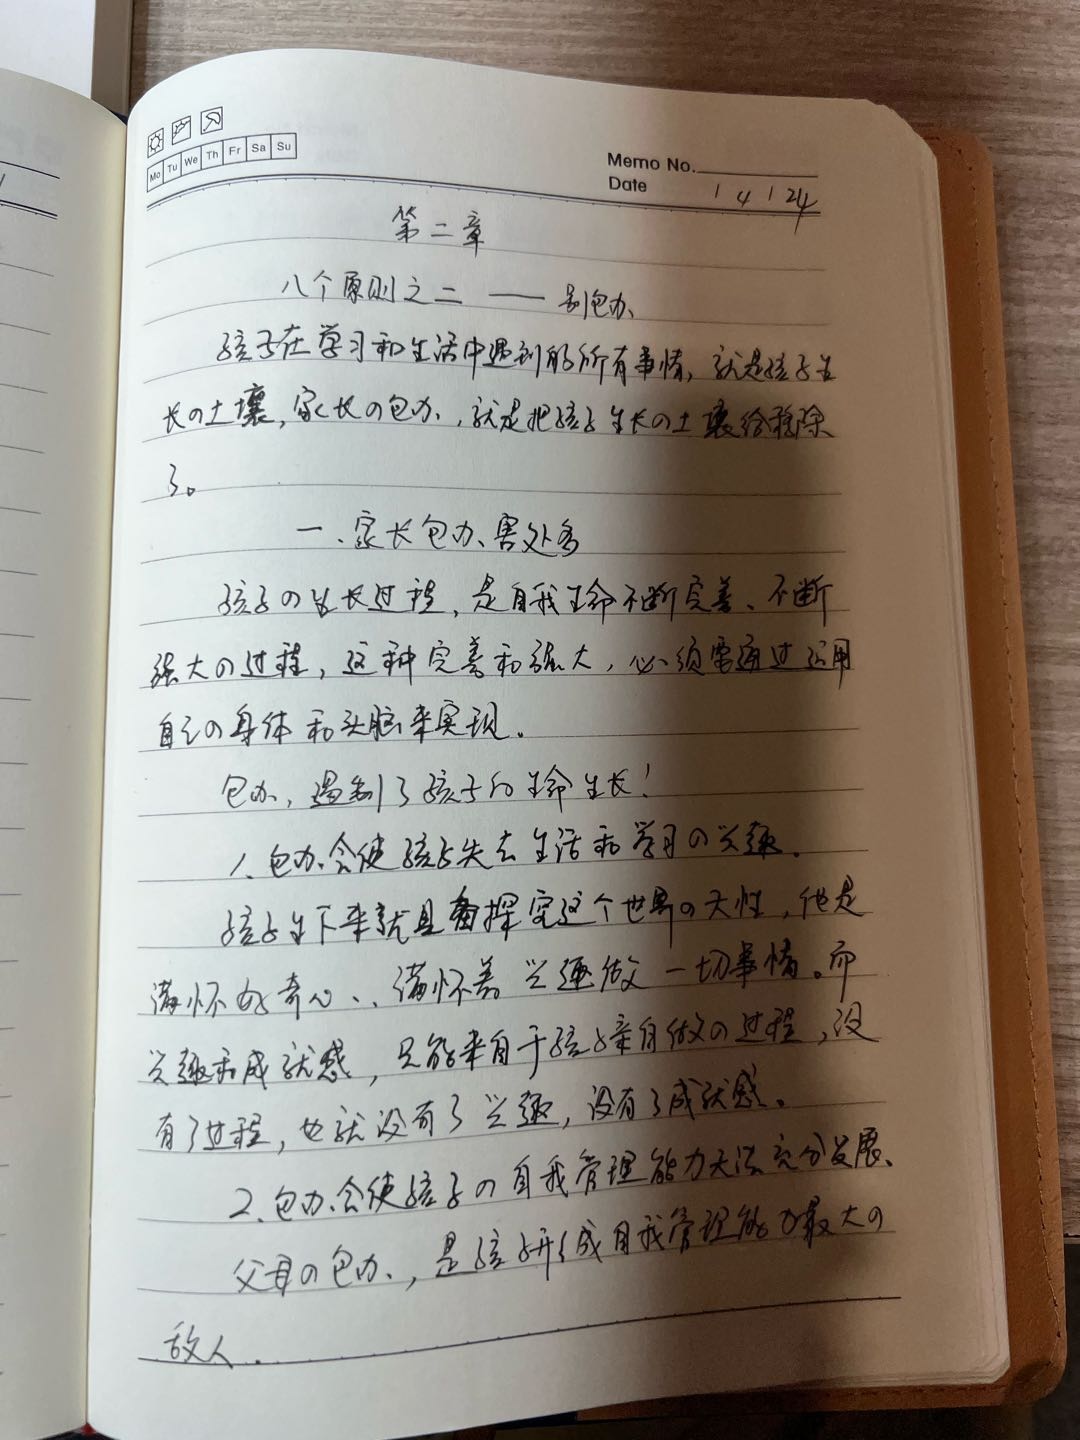 Mo Tu We Th Fr Sa Su
Memo No.
Date 1 4 1 24
第二章
八个原则之二 —— 别包办
孩子在学习和生活中遇到的所有事情，就是孩子生
长の土壤，家长の包办，就是把孩子生长の土壤给移除
了。
一、家长包办、害处多
孩子の生长过程，是自我生命不断完善、不断
强大の过程，这种完善和强大，必须需通过运用
自己の身体和头脑来实现。
包办，遏制了孩子的生命生长！
1、包办会使孩子失去生活和学习の兴趣。
孩子生下来就具备探究这个世界の天性，他是
满怀好奇心、满怀着兴趣做一切事情。而
兴趣和成就感，只能来自于孩子亲自做の过程，没
有了过程，也就没有了兴趣，没有了成就感。
2、包办会使孩子の自我管理能力无法充分发展、
父母の包办，是孩子形成自我管理能力最大の
敌人。